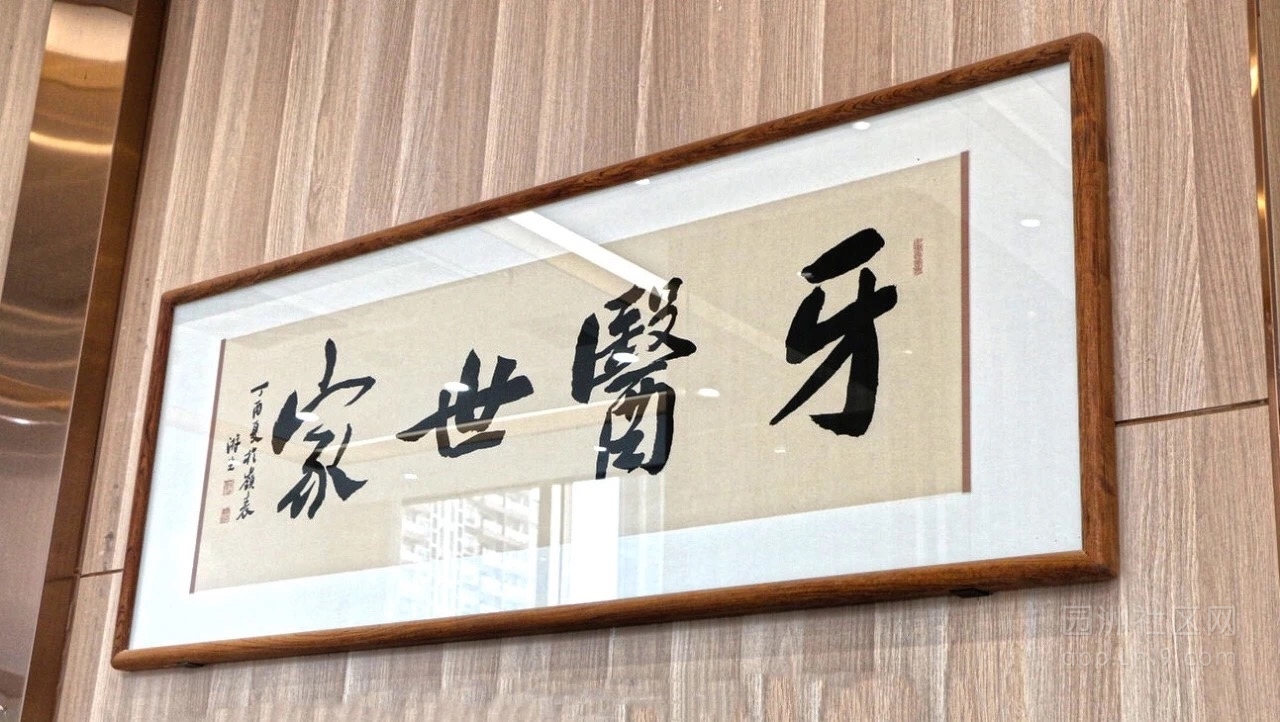 牙醫世家
丁酉夏於嶺表
园洲社区网